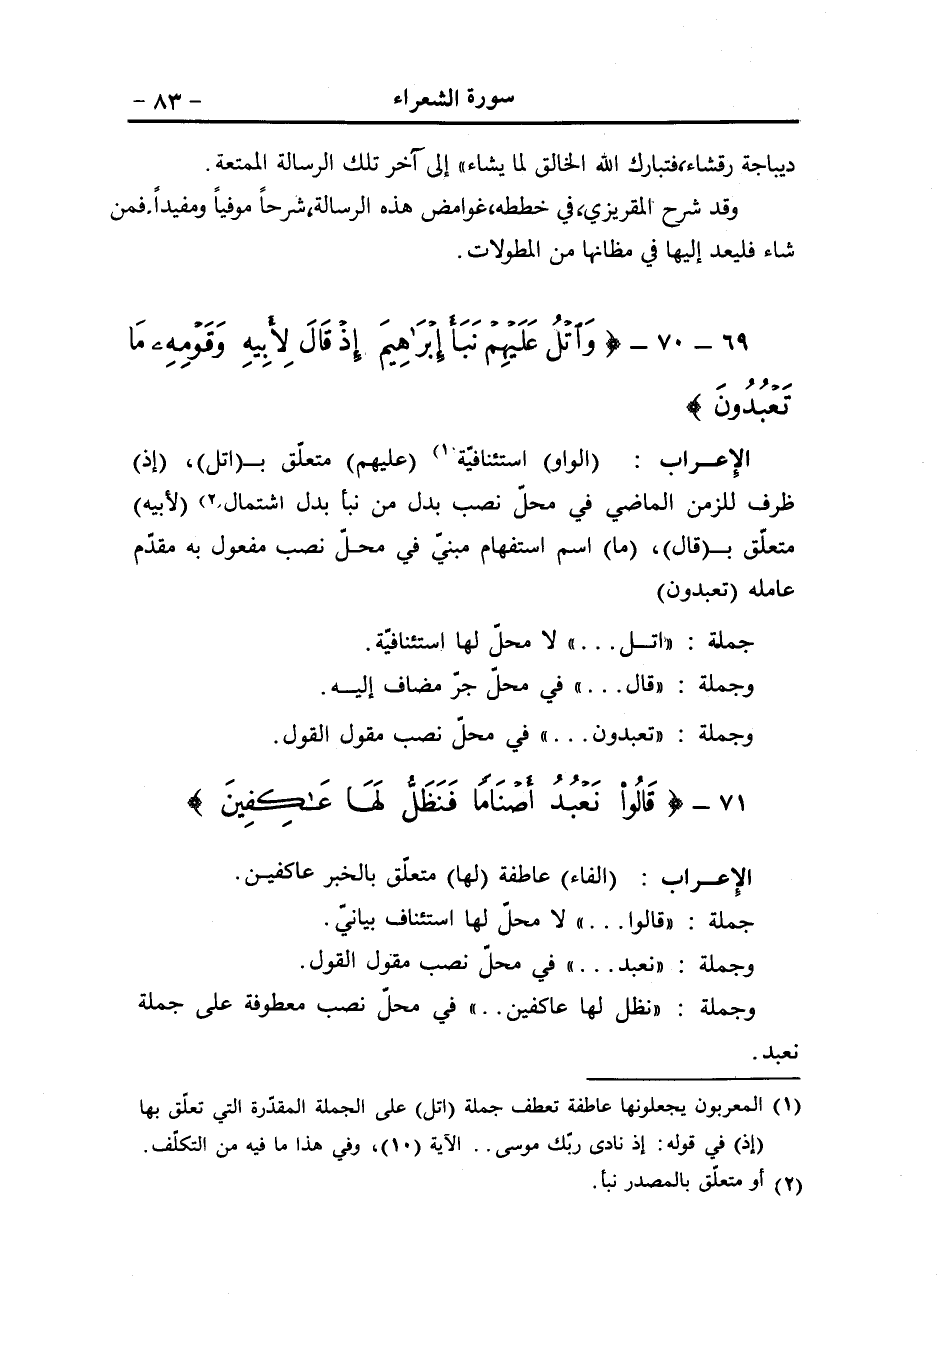 سورة الشعراء - ٨٣ -
ديباجة رقشاء، فتبارك الله الخالق لما يشاء» إلى آخر تلك الرسالة الممتعة.
وقد شرح المقريزي، في خططه، غوامض هذه الرسالة، شرحاً موفياً ومفيداً. فمن
شاء فليعد إليها في مظانها من المطولات.
٦٩ - ٧٠ - ﴿ وَٱتْلُ عَلَيْهِمْ نَبَأَ إِبْرَٰهِيمَ إِذْ قَالَ لِأَبِيهِ وَقَوْمِهِۦ مَا
تَعْبُدُونَ ﴾
الإعـــراب : (الواو) استئنافيّة(١) (عليهم) متعلّق بـ(اتل)، (إذ)
ظرف للزمن الماضي في محلّ نصب بدل من نبأ بدل اشتمال(٢) (لأبيه)
متعلّق بـ(قال)، (ما) اسم استفهام مبنيّ في محلّ نصب مفعول به مقدّم
عامله (تعبدون)
جملة : «اتــل...» لا محلّ لها استئنافيّة.
وجملة : «قال...» في محلّ جرّ مضاف إليــه.
وجملة : «تعبدون...» في محلّ نصب مقول القول.
٧١ - ﴿ قَالُوا۟ نَعْبُدُ أَصْنَامًا فَنَظَلُّ لَهَا عَـٰكِفِينَ ﴾
الإعـــراب : (الفاء) عاطفة (لها) متعلّق بالخبر عاكفيـن.
جملة : «قالوا...» لا محلّ لها استئناف بيانيّ.
وجملة : «نعبد...» في محلّ نصب مقول القول.
وجملة : «نظل لها عاكفين..» في محلّ نصب معطوفة على جملة
نعبد.
(١) المعربون يجعلونها عاطفة تعطف جملة (اتل) على الجملة المقدّرة التي تعلّق بها
(إذ) في قوله: إذ نادى ربّك موسى.. الآية (١٠)، وفي هذا ما فيه من التكلّف.
(٢) أو متعلّق بالمصدر نبأ.